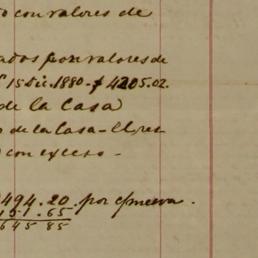 o con valores de
ados por valores de
15 Dic. 1880 - $ 4205.02.
de la Casa
o de la Casa - Llres
con exceso -
494.20. por
151.65
645 85